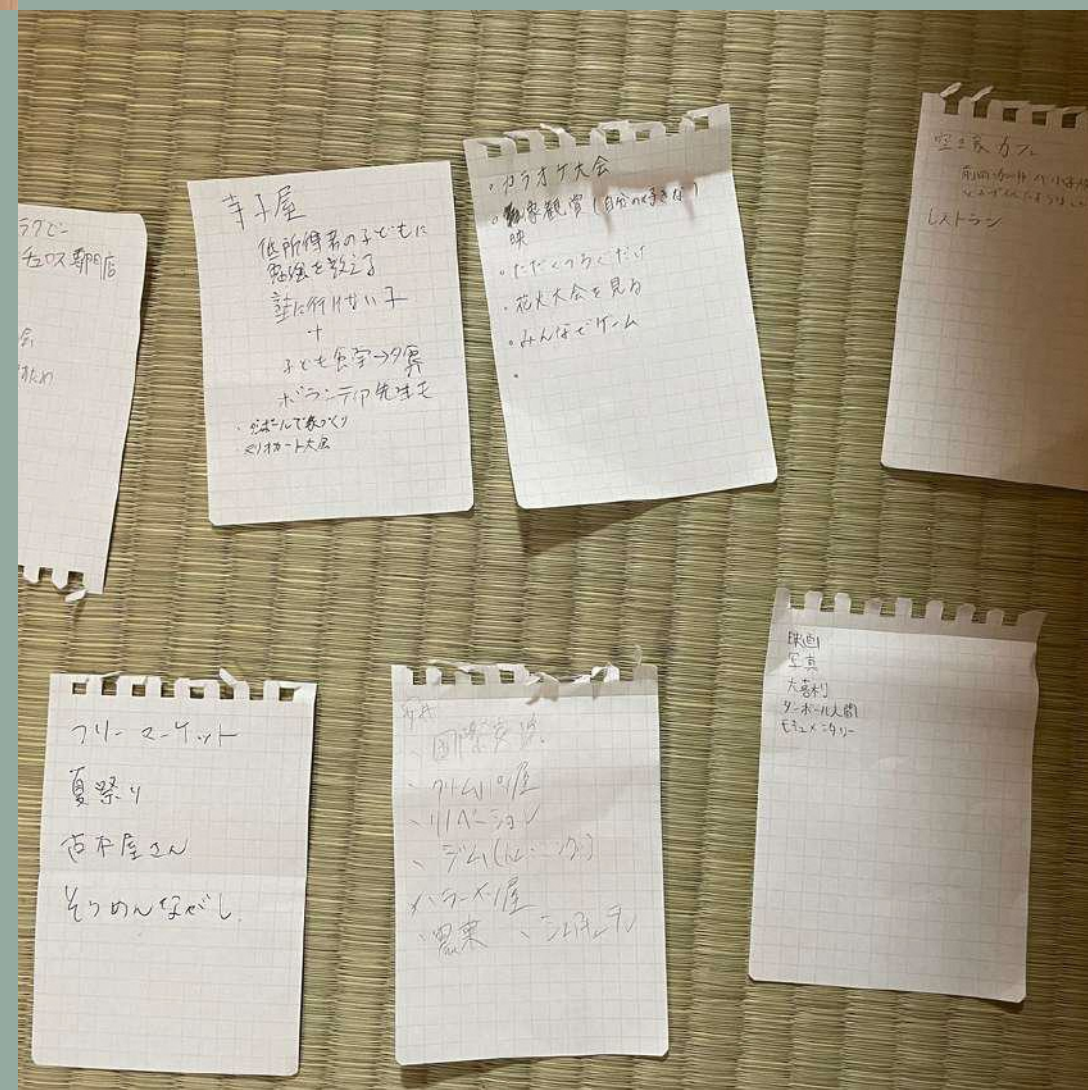 ラグビー
チュロス専門店
会
寺子屋
低所得者の子どもに
勉強を教える
塾に行けない子
+
子ども食堂→夕食
ボランティア先生も
・ダンボールで家づくり
・マリオカート大会
・カラオケ大会
・映象観賞(自分の好きな)
映
・ただくつろぐだけ
・花火大会を見る
・みんなでゲーム
・
空き家カフェ
レストラン
フリーマーケット
夏祭り
古本屋さん
そうめんながし
、国際交流
・クリームパン屋
、リノベーション
、ジム(トレーニング)
ラーメン屋
、農業
映画
写真
大喜利
モキュメンタリー